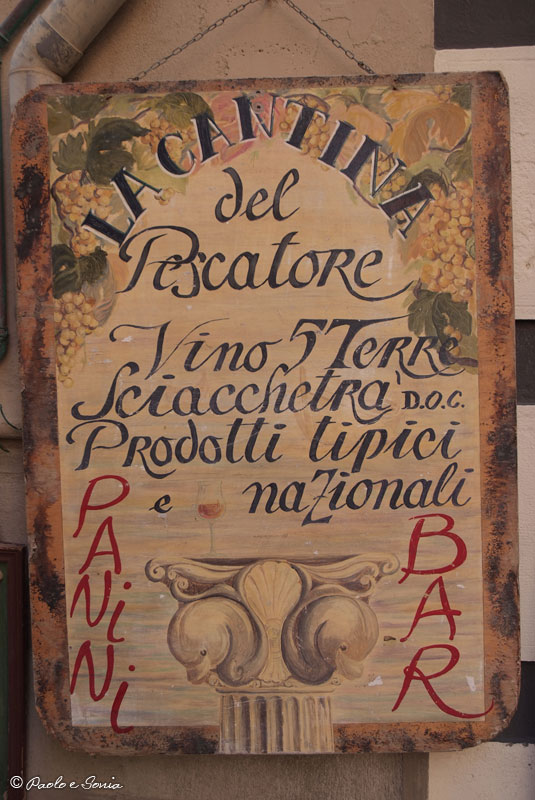 LA CANTINA
del
Pescatore
Vino 5 Terre
Sciacchetrà D.O.C.
Prodotti tipici
e nazionali
PANiNi
BAR
© Paolo e Sonia